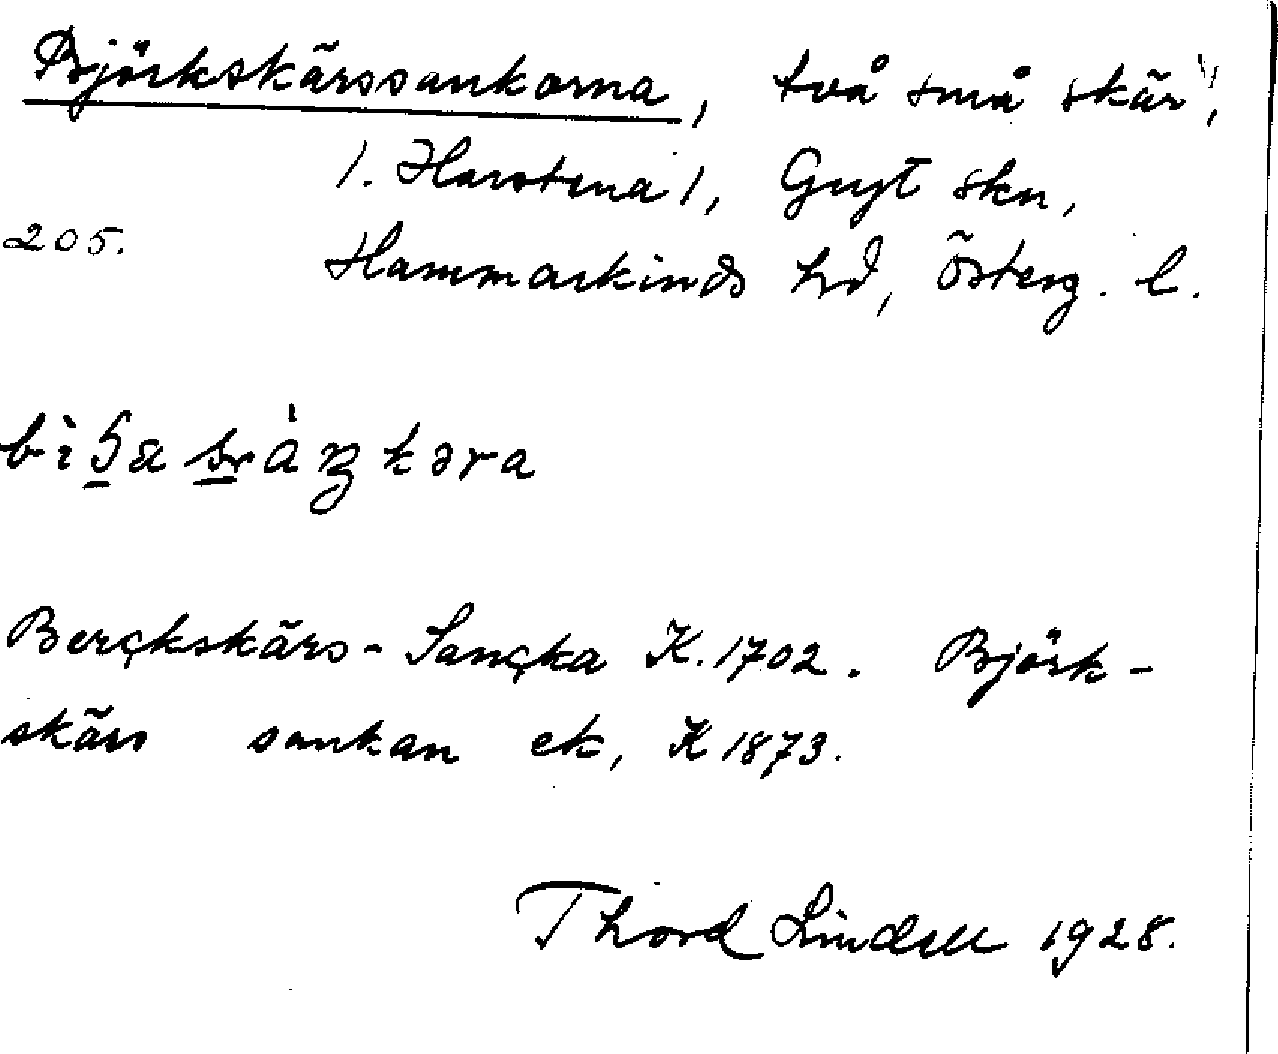 Björkskärssankorna, två små skär,
/. Harstena /, Gryt skn,
205. Hammarkinds hd, Österg. l.
Berçkskärs-Sançka K. 1702. Björk-
skärs sankan ek, K 1873.
Thord Lindell 1928.